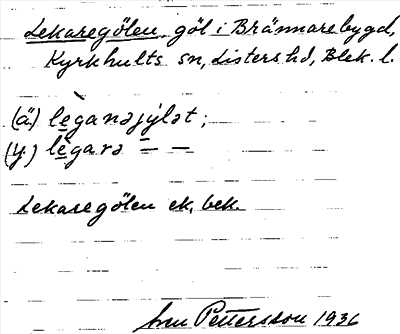 Lekaregölen, göl i Brännarebygd,
Kyrkhults sn, Listers hd, Blek. l.
(ä.) lèganəjýlət;
(y.) lègarə = —
Lekaregölen ek. bek.
Pettersson 1936